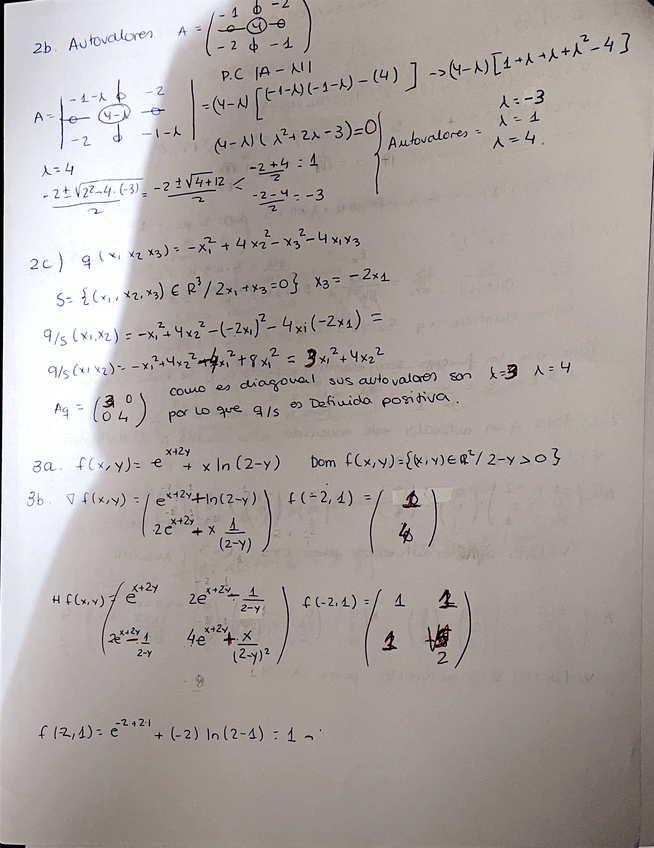 2b. Autovalores A = ( -1 0 -2 / 0 4 0 / -2 0 -1 )
P.C |A - λI|
A = | -1-λ 0 -2 / 0 4-λ 0 / -2 0 -1-λ | = (4-λ) [(-1-λ)(-1-λ) - (4)] → (4-λ) [1+λ+λ+λ² - 4]
(4-λ) (λ² + 2λ - 3) = 0 } Autovalores = λ = -3 λ = 1 λ = 4.
λ = 4
(-2 ± √(2² - 4·(-3)))/2 = (-2 ± √(4+12))/2 < (-2+4)/2 = 1
(-2-4)/2 = -3
2c) q(x₁ x₂ x₃) = -x₁² + 4x₂² - x₃² - 4x₁x₃
S = {(x₁, x₂, x₃) ∈ R³ / 2x₁ + x₃ = 0} x₃ = -2x₁
q/s (x₁, x₂) = -x₁² + 4x₂² - (-2x₁)² - 4x₁(-2x₁) =
q/s (x₁ x₂) = -x₁² + 4x₂² - 4x₁² + 8x₁² = 3x₁² + 4x₂²
Aq = ( 3 0 / 0 4 ) como es diagonal sus autovalores son λ=3 λ=4
por lo que q/s es Definida positiva.
3a. f(x,y) = e^(x+2y) + x ln(2-y) Dom f(x,y) = {(x,y) ∈ R² / 2-y > 0}
3b. ∇f(x,y) = ( e^(x+2y) + ln(2-y) / 2e^(x+2y) + x 1/(2-y) ) f(-2,1) = ( 1 / 4 )
H f(x,y) = ( e^(x+2y) 2e^(x+2y) - 1/(2-y) / 2e^(x+2y) - 1/(2-y) 4e^(x+2y) + x/(2-y)² ) f(-2,1) = ( 1 1 / 1 2 )
f(-2,1) = e^(-2+2·1) + (-2) ln(2-1) = 1